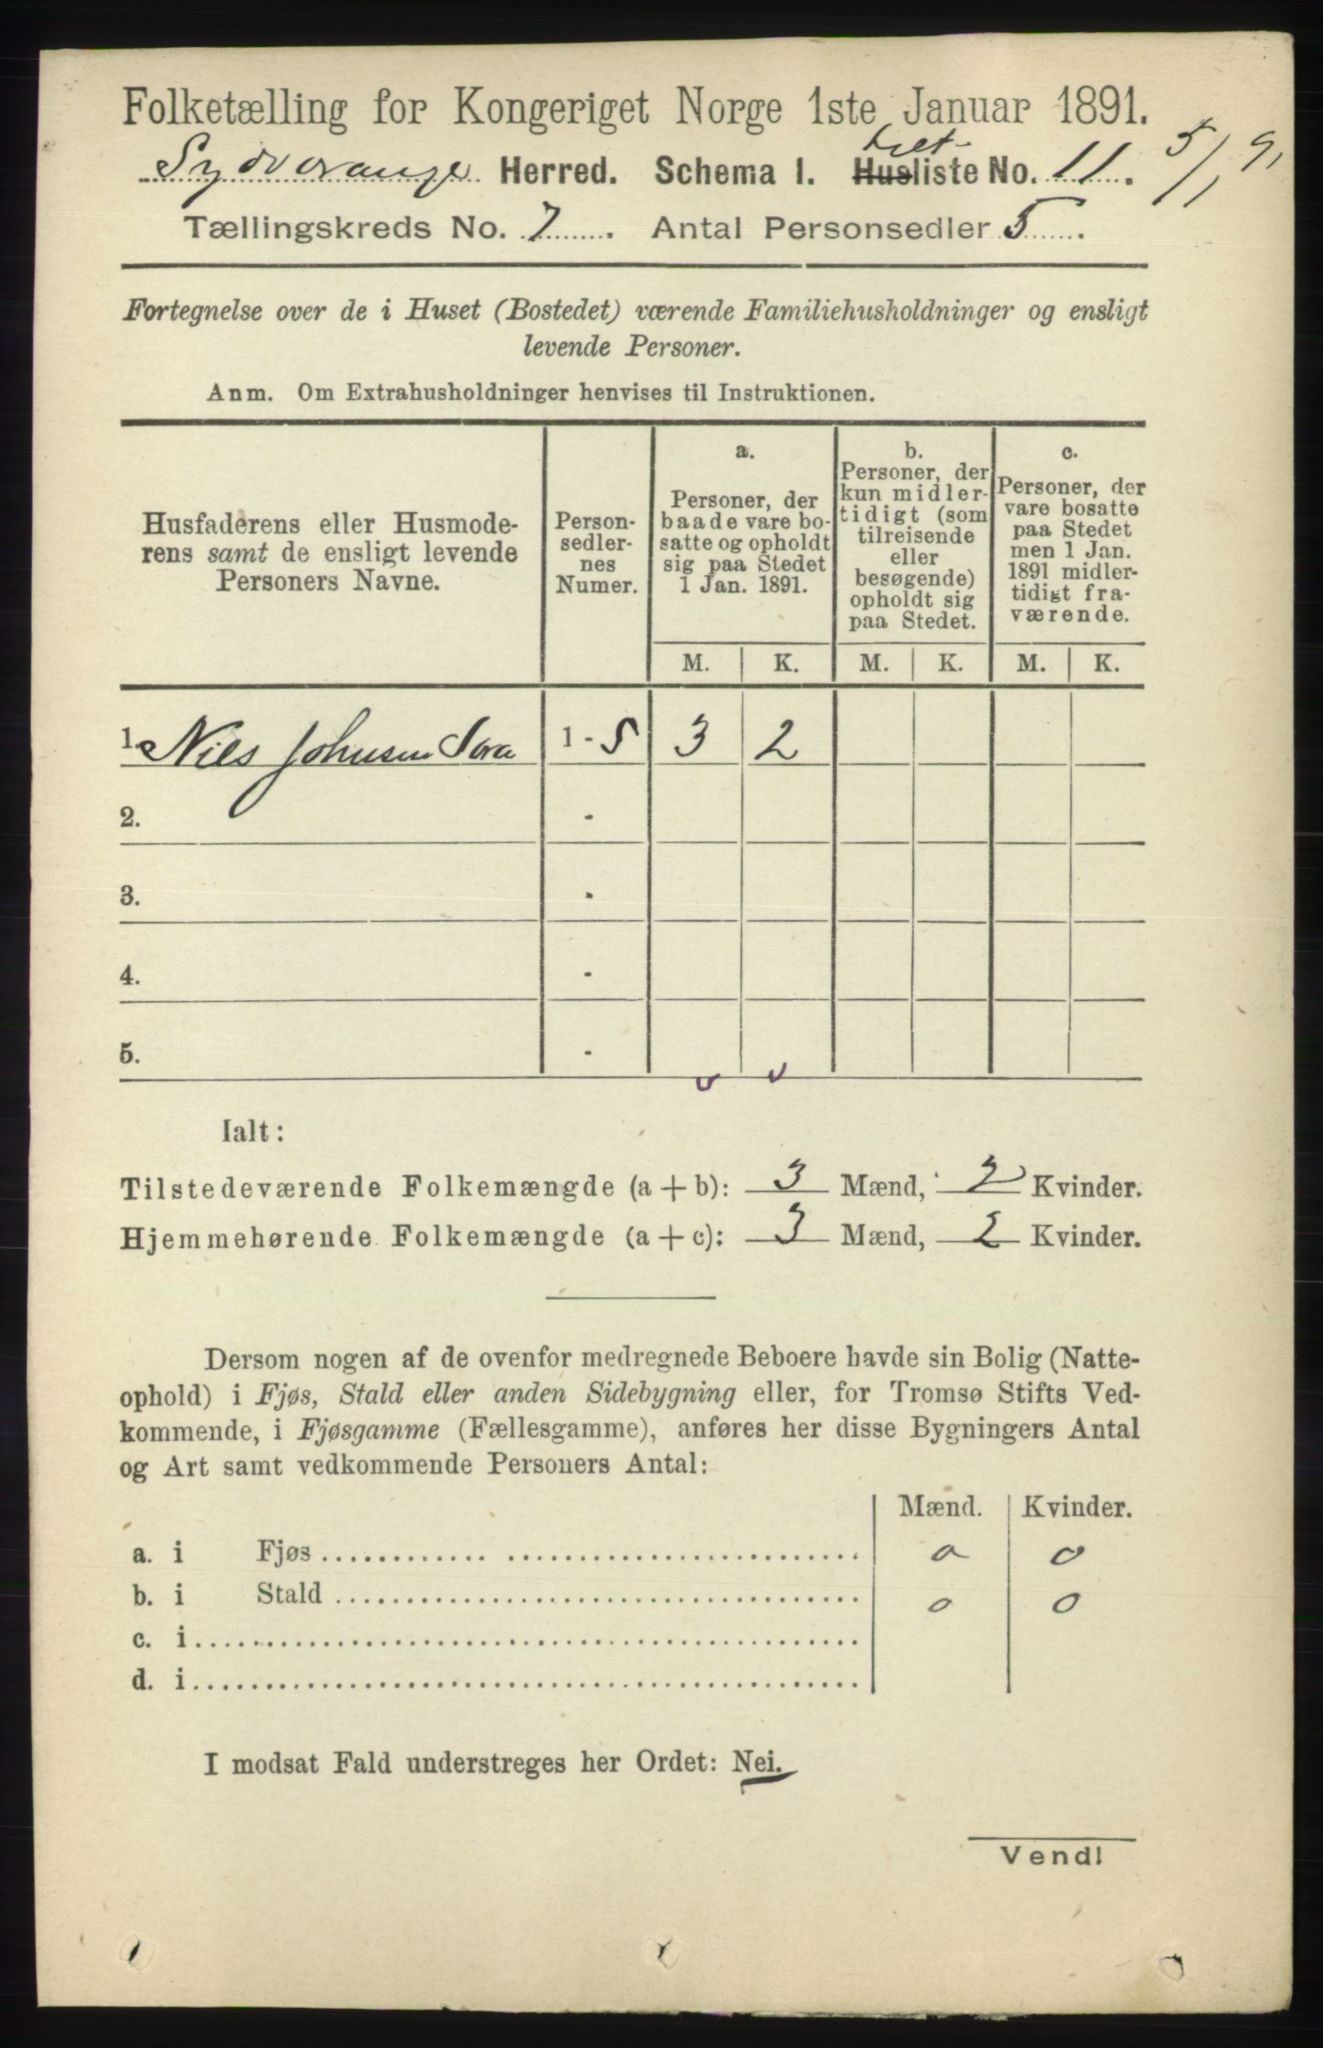 Folketælling for Kongeriget Norge 1ste Januar 1891.
Sydvaranger Herred. Schema I. Husliste No. 11. 5/1 91
Telt
Tællingskreds No. 7. Antal Personsedler 5.
Fortegnelse over de i Huset (Bostedet) værende Familiehusholdninger og ensligt
levende Personer.
Anm. Om Extrahusholdninger henvises til Instruktionen.
Husfaderens eller Husmode-
rens samt de ensligt levende
Personers Navne.
Person-
sedler-
nes
Numer.
a.
Personer, der
baade vare bo-
satte og opholdt
sig paa Stedet
1 Jan. 1891.
b.
Personer, der
kun midler-
tidigt (som
tilreisende
eller
besøgende)
opholdt sig
paa Stedet.
c.
Personer, der
vare bosatte
paa Stedet
men 1 Jan.
1891 midler-
tidigt fra-
værende.
M. K. M. K. M. K.
1. Niels Johnsen Sara 1 - 5 3 2
2. -
3. -
4. -
5. -
Ialt:
Tilstedeværende Folkemængde (a + b): 3 Mænd, 2 Kvinder.
Hjemmehørende Folkemængde (a + c): 3 Mænd, 2 Kvinder.
Dersom nogen af de ovenfor medregnede Beboere havde sin Bolig (Natte-
ophold) i Fjøs, Stald eller anden Sidebygning eller, for Tromsø Stifts Ved-
kommende, i Fjøsgamme (Fællesgamme), anføres her disse Bygningers Antal
og Art samt vedkommende Personers Antal:
Mænd. Kvinder.
a. i Fjøs 0 0
b. i Stald 0 0
c. i
d. i
I modsat Fald understreges her Ordet: Nei.
Vend!